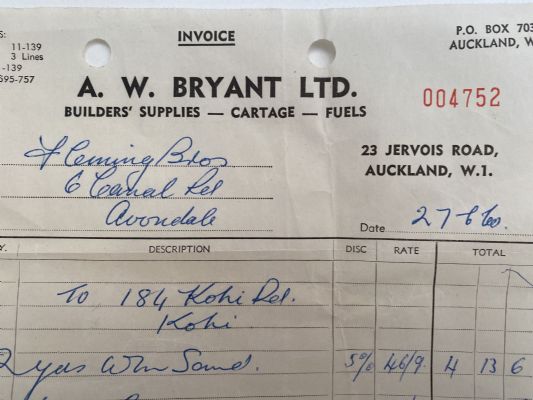 S:
INVOICE
P.O. BOX 703
11-139
3 Lines
AUCKLAND, W.
-139
695-757
A. W. BRYANT LTD.
004752
BUILDERS' SUPPLIES — CARTAGE — FUELS
Fleming Bros
6 Canal Rd
Avondale
23 JERVOIS ROAD,
AUCKLAND, W.1.
Date 27 6 60.
Y. DESCRIPTION DISC RATE TOTAL
To 184 Kohi Rd.
Kohi.
2 yds Sand. 5% 46/9. 4 13 6